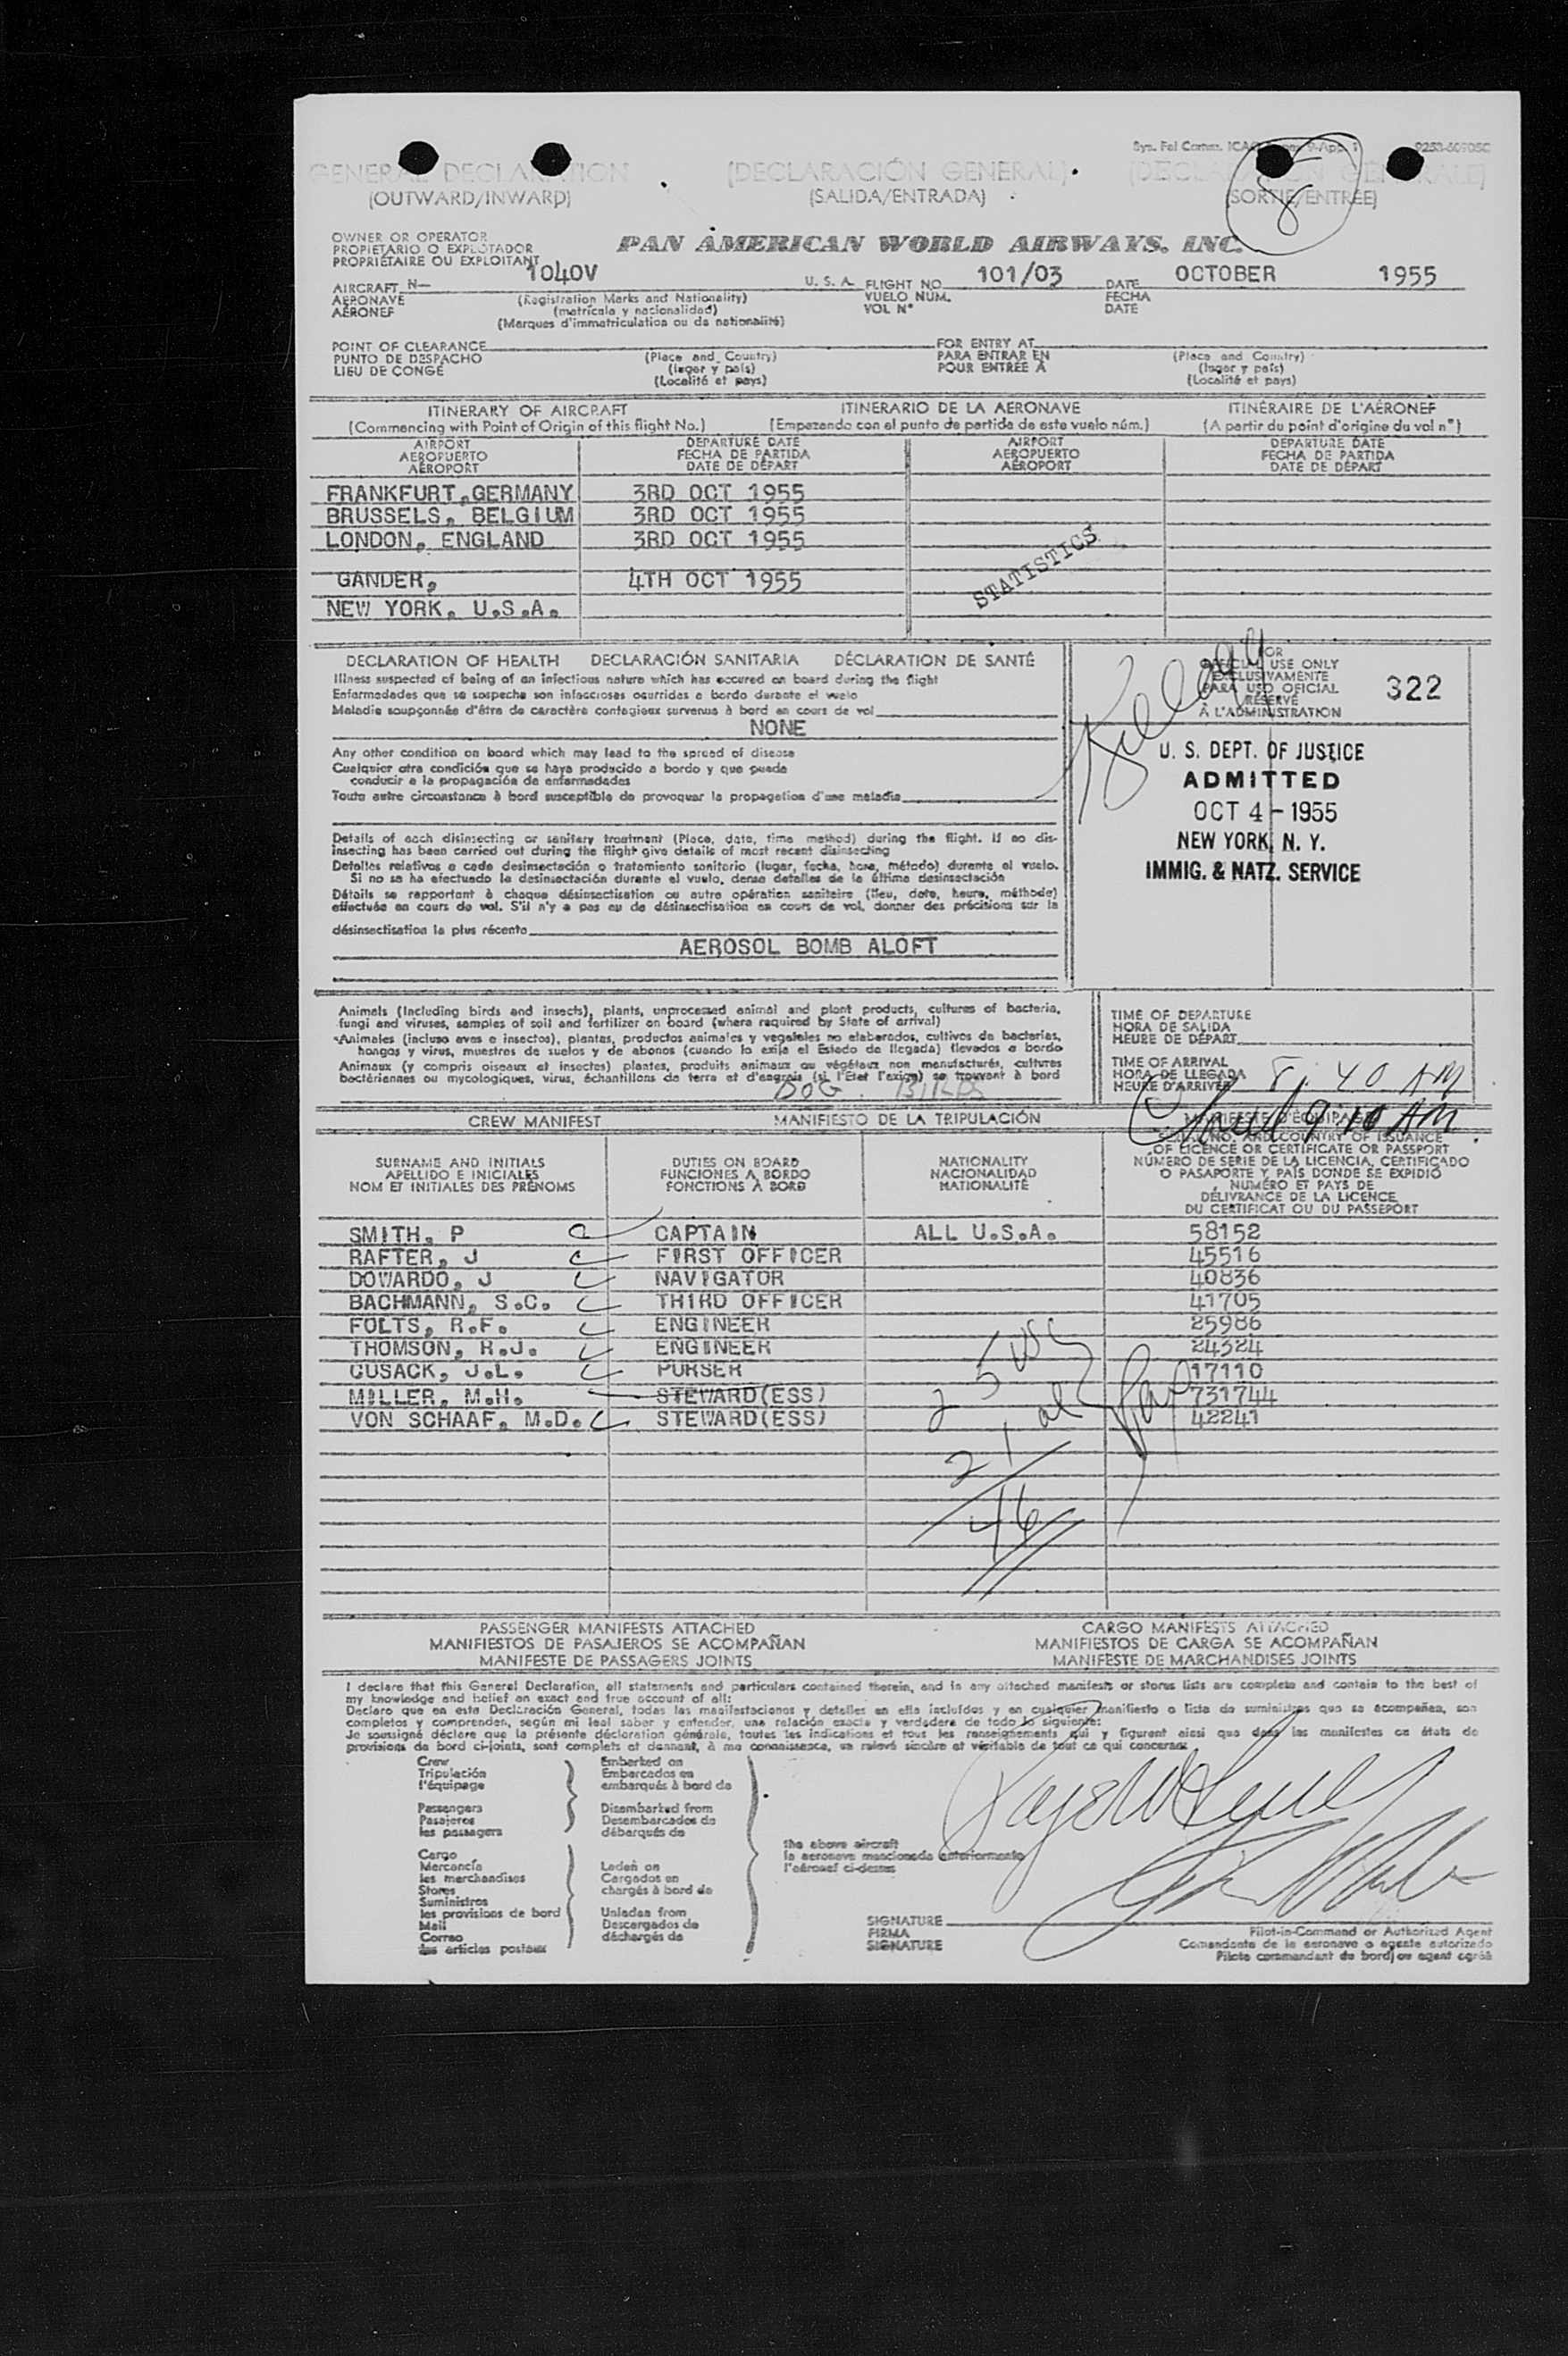 Sys. Fol Comm. ICAO
GENERAL DECLARATION (DECLARACIÓN GENERAL) (DÉCLARATION GÉNÉRALE)
(OUTWARD/INWARD) (SALIDA/ENTRADA) (SORTIE/ENTRÉE)
8
OWNER OR OPERATOR
PROPIETARIO O EXPLOTADOR
PROPRIÉTAIRE OU EXPLOITANT
PAN AMERICAN WORLD AIRWAYS, INC.
AIRCRAFT N— 1040V U. S. A. FLIGHT NO. 101/03 DATE OCTOBER 1955
AERONAVE (Registration Marks and Nationality) VUELO NUM. FECHA
AÉRONEF (matrícula y nacionalidad) VOL N° DATE
(Marques d'immatriculation ou de nationalité)
POINT OF CLEARANCE FOR ENTRY AT
PUNTO DE DESPACHO (Place and Country) PARA ENTRAR EN (Place and Country)
LIEU DE CONGÉ (lugar y país) POUR ENTRÉE A (lugar y país)
(Localité et pays) (Localité et pays)
ITINERARY OF AIRCRAFT ITINERARIO DE LA AERONAVE ITINÉRAIRE DE L'AÉRONEF
(Commencing with Point of Origin of this flight No.) (Empezando con el punto de partida de este vuelo núm.) (A partir du point d'origine du vol n°)
AIRPORT DEPARTURE DATE AIRPORT DEPARTURE DATE
AEROPUERTO FECHA DE PARTIDA AEROPUERTO FECHA DE PARTIDA
AÉROPORT DATE DE DÉPART AÉROPORT DATE DE DÉPART
FRANKFURT,GERMANY 3RD OCT 1955
BRUSSELS, BELGIUM 3RD OCT 1955
LONDON, ENGLAND 3RD OCT 1955
STATISTICS
GANDER, 4TH OCT 1955
NEW YORK, U.S.A.
DECLARATION OF HEALTH DECLARACIÓN SANITARIA DÉCLARATION DE SANTÉ
Illness suspected of being of an infectious nature which has occured on board during the flight
Enfermedades que se sospecha son infecciosas ocurridas a bordo durante el vuelo
Maladie soupçonnée d'être de caractère contagieux survenus à bord en cours de vol
NONE
FOR
OFFICIAL USE ONLY
EXCLUSIVAMENTE
PARA USO OFICIAL
RÉSERVÉ
À L'ADMINISTRATION
322
Kellogg
U. S. DEPT. OF JUSTICE
ADMITTED
OCT 4 - 1955
NEW YORK, N. Y.
IMMIG. & NATZ. SERVICE
Any other condition on board which may lead to the spread of disease
Cualquier otra condición que se haya producido a bordo y que pueda
conducir a la propagación de enfermedades
Toute autre circonstance à bord susceptible de provoquer la propagation d'une maladie
Details of each disinsecting or sanitary treatment (Place, date, time method) during the flight. If no dis-
insecting has been carried out during the flight give details of most recent disinsecting
Detalles relativos a cada desinsectación o tratamiento sanitario (lugar, fecha, hora, método) durante el vuelo.
Si no se ha efectuado la desinsectación durante el vuelo, dense detalles de la última desinsectación
Détails se rapportant à chaque désinsectisation ou autre opération sanitaire (lieu, date, heure, méthode)
effectuée en cours de vol. S'il n'y a pas eu de désinsectisation en cours de vol, donner des précisions sur la
désinsectisation la plus récente
AEROSOL BOMB ALOFT
Animals (Including birds and insects), plants, unprocessed animal and plant products, cultures of bacteria,
fungi and viruses, samples of soil and fertilizer on board (where required by State of arrival)
Animales (incluso aves e insectos), plantas, productos animales y vegetales no elaborados, cultivos de bacterias,
hongos y virus, muestras de suelos y de abonos (cuando lo exija el Estado de llegada) llevados a bordo
Animaux (y compris oiseaux et insectes) plantes, produits animaux ou végétaux non manufacturés, cultures
bactériennes ou mycologiques, virus, échantillons de terre et d'engrais (si l'État l'exige) se trouvant à bord
DOG. BIRDS
TIME OF DEPARTURE
HORA DE SALIDA
HEURE DE DÉPART
TIME OF ARRIVAL
HORA DE LLEGADA
HEURE D'ARRIVÉE 8:40 AM
9 10 AM.
CREW MANIFEST MANIFIESTO DE LA TRIPULACIÓN MANIFESTE D'ÉQUIPAGE
SURNAME AND INITIALS DUTIES ON BOARD NATIONALITY SERIAL NO. AND COUNTRY OF ISSUANCE
APELLIDO E INICIALES FUNCIONES A BORDO NACIONALIDAD OF LICENCE OR CERTIFICATE OR PASSPORT
NOM ET INITIALES DES PRÉNOMS FONCTIONS À BORD NATIONALITÉ NÚMERO DE SERIE DE LA LICENCIA, CERTIFICADO
O PASAPORTE Y PAÍS DONDE SE EXPIDIÓ
NUMÉRO ET PAYS DE
DÉLIVRANCE DE LA LICENCE
DU CERTIFICAT OU DU PASSEPORT
SMITH, P CAPTAIN ALL U.S.A. 58152
RAFTER, J FIRST OFFICER 45516
DOWARDO, J NAVIGATOR 40836
BACHMANN, S.C. THIRD OFFICER 41705
FOLTS, R.F. ENGINEER 25986
THOMSON, R.J. ENGINEER 24324
CUSACK, J.L. PURSER 17110
MILLER, M.H. STEWARD(ESS) 731744
VON SCHAAF, M.D. STEWARD(ESS) 42241
25 usc
21 al
Pax
46
PASSENGER MANIFESTS ATTACHED CARGO MANIFESTS ATTACHED
MANIFIESTOS DE PASAJEROS SE ACOMPAÑAN MANIFIESTOS DE CARGA SE ACOMPAÑAN
MANIFESTE DE PASSAGERS JOINTS MANIFESTE DE MARCHANDISES JOINTS
I declare that this General Declaration, all statements and particulars contained therein, and in any attached manifests or stores lists are complete and contain to the best of
my knowledge and belief an exact and true account of all:
Declaro que en esta Declaración General, todas las manifestaciones y detalles en ella incluidos y en cualquier manifiesto o lista de suministros que se acompañen, son
completos y comprenden, según mi leal saber y entender, una relación exacta y verdadera de todo lo siguiente:
Je soussigné déclare que la présente déclaration générale, toutes les indications et tous les renseignements qui y figurent ainsi que dans les manifestes ou états de
provisions de bord ci-joints, sont complets et donnent, à ma connaissance, un relevé sincère et véritable de tout ce qui concerne:
Crew Embarked on
Tripulación Embarcados en
l'équipage embarqués à bord de
Passengers Disembarked from
Pasajeros Desembarcados de
les passagers débarqués de
the above aircraft
la aeronave mencionada anteriormente
l'aéronef ci-dessus
Cargo
Mercancía Laden on
les marchandises Cargados en
Stores chargés à bord de
Suministros
les provisions de bord Unladen from
Mail Descargados de
Correo déchargés de
les articles postaux
SIGNATURE
FIRMA
SIGNATURE
Pilot-in-Command or Authorized Agent
Comandante de la aeronave o agente autorizado
Pilote commandant de bord, ou agent agréé